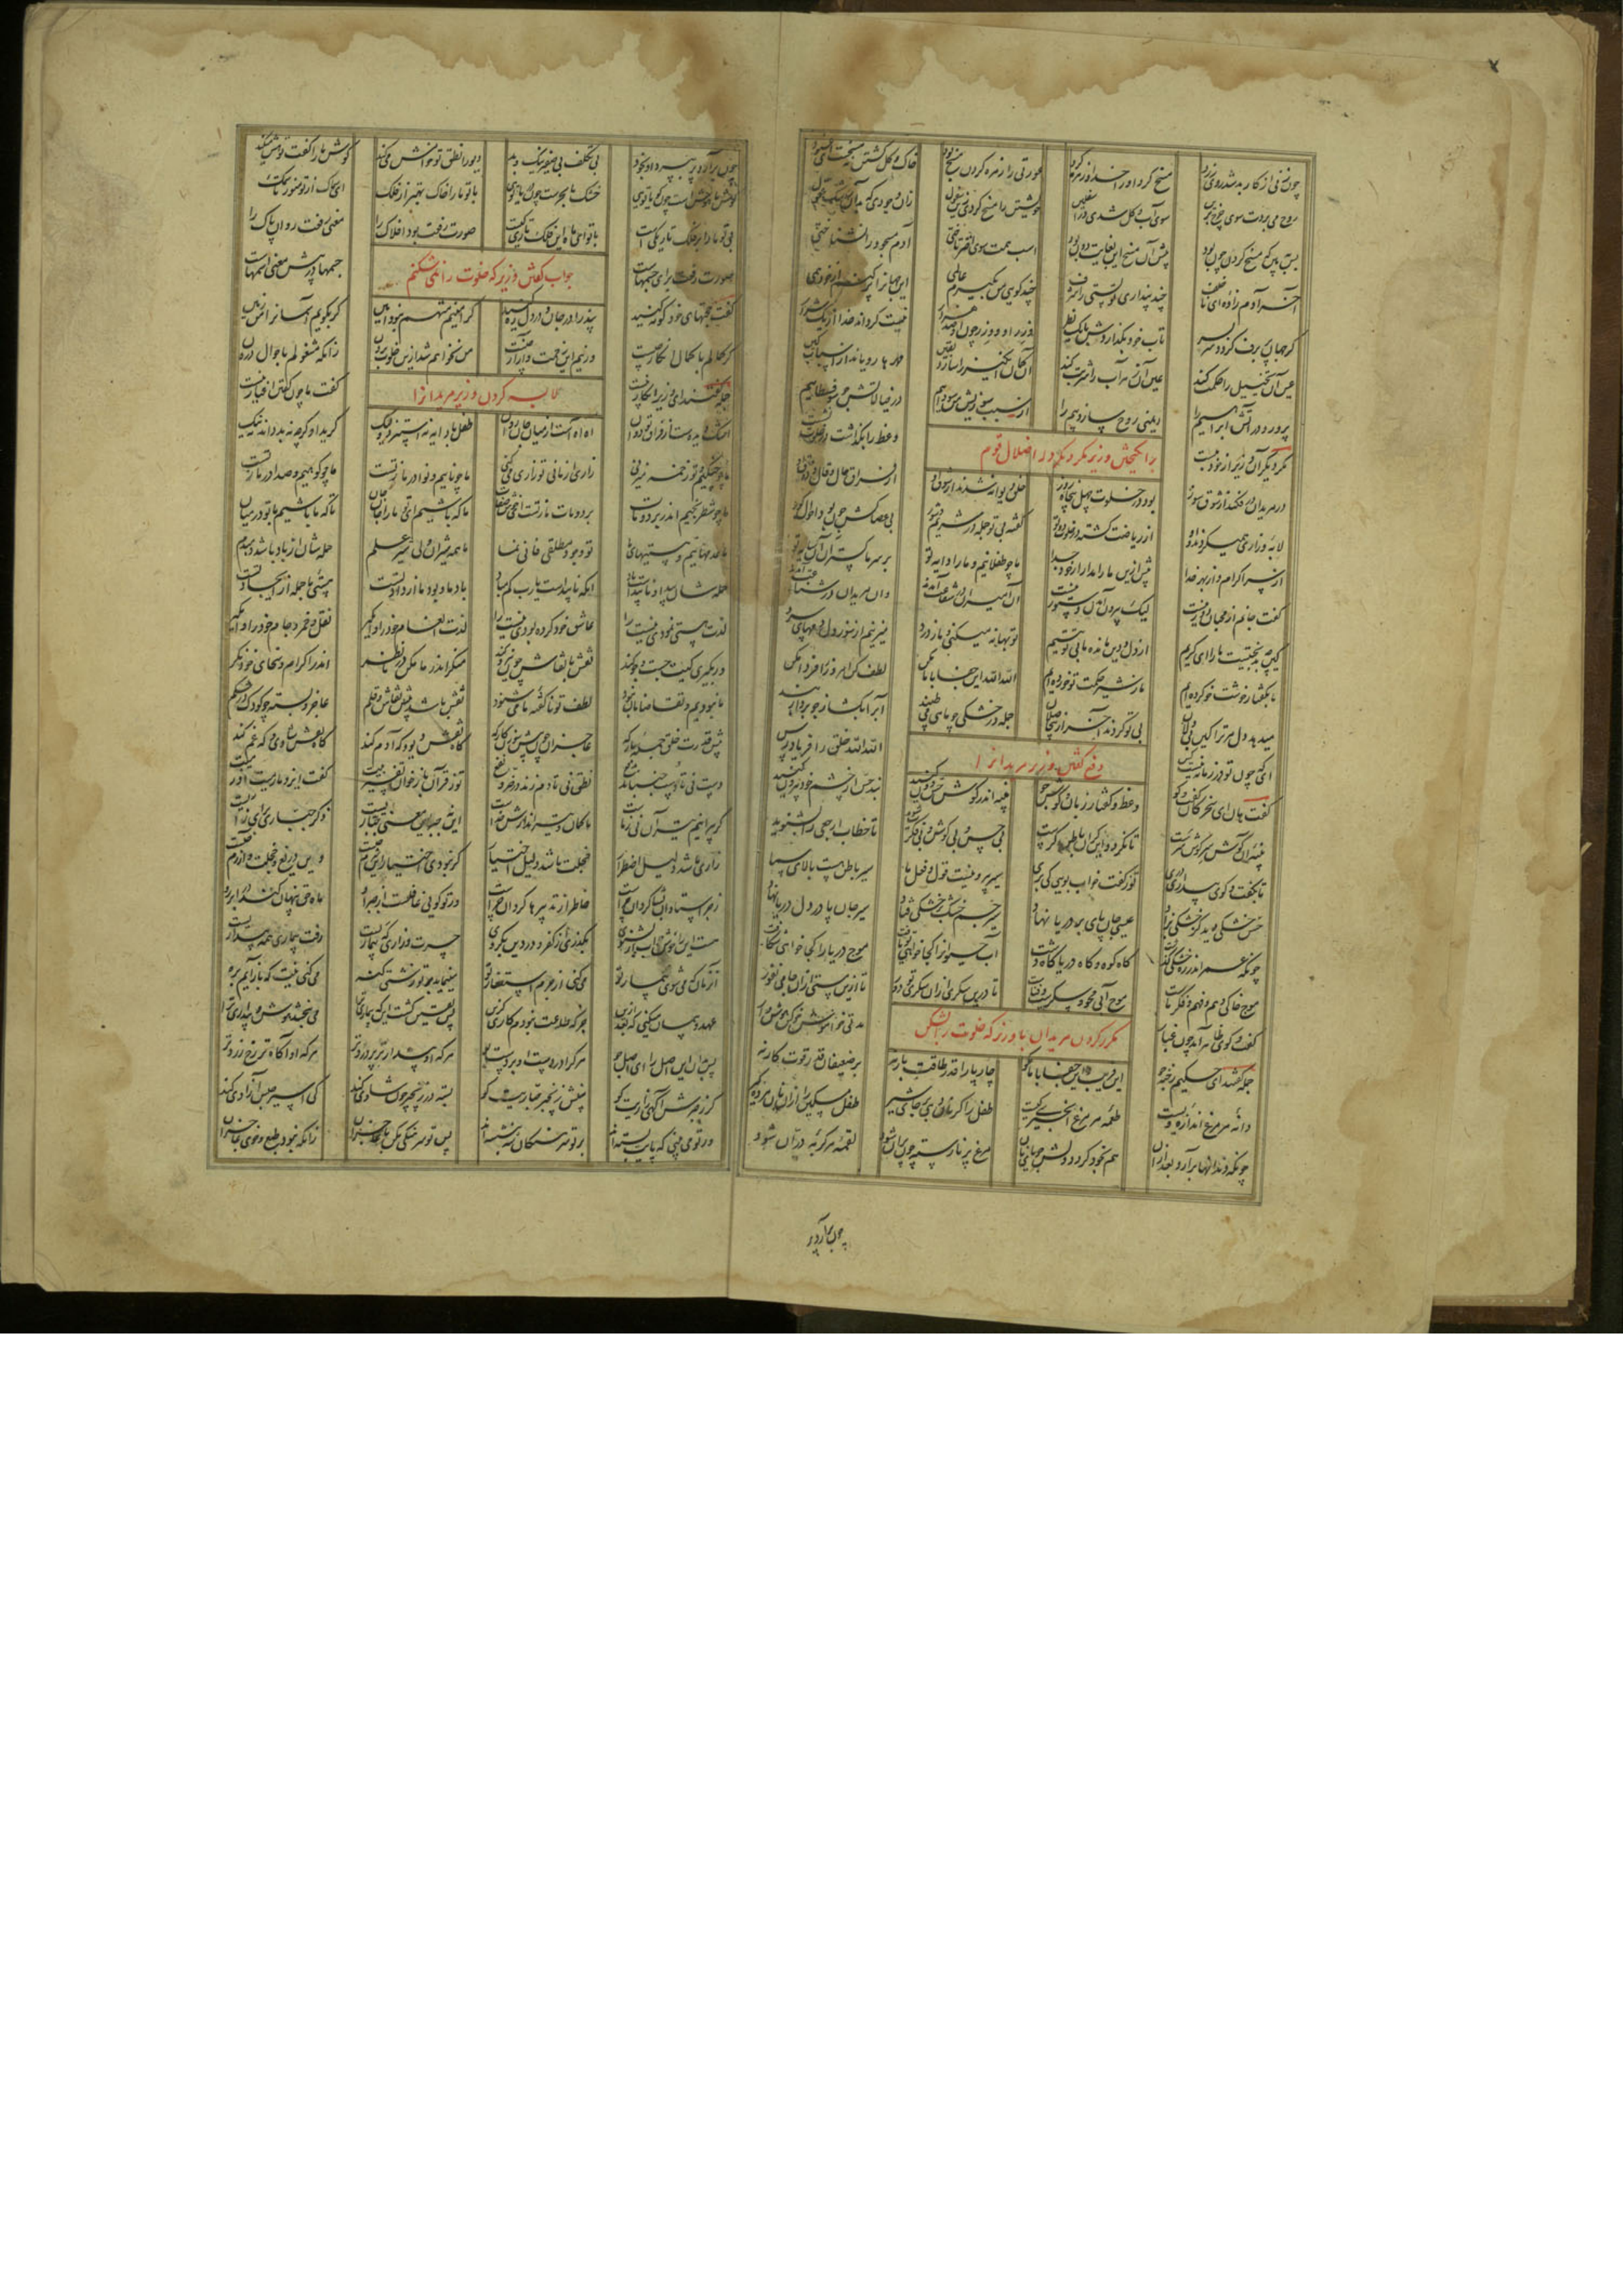 چون زنی از کار بد شد روی زرد مسخ کرد او را خدا و زهره کرد عورتی را زهره کردن مسخ بود خاک و گل گشتن نه مسخست ای عنود
روح می بردت سوی چرخ برین سوی آب و گل شدی در اسفلین خویشتن را مسخ کردی زین سفول زان وجودی که بدان رشک عقول
پس ببین کین مسخ کردن چون بود پیش آن مسخ این بغایت دون بود اسب همت سوی اختر تاختی آدم مسجود را نشناختی
آخر آدم زاده ای ناخلف چند پنداری تو پستی را شرف چند گویی من بگیرم عالمی این جهان را پر کنم از خود همی
گر جهان پر برف گردد سر بسر تاب خور بگدازدش با یک نظر وزر او و وزر چون او صد هزار نیست گرداند خدا از یک شرار
عین آن تخییل را حکمت کند عین آن زهرآب را شربت کند آن گمان انگیز را سازد یقین مهرها رویاند از اسباب کین
پرورد در آتش ابراهیم را ایمنی روح سازد بیم را از سبب سوزیش من سوداییم در خیالاتش چو سوفسطاییم
برانگیختن وزیر مکر دیگر در اضلال قوم
مکر دیگر آن وزیر از خود ببست وعظ را بگذاشت در خلوت نشست
در مریدان در فکند از شوق سوز بود در خلوت چهل پنجاه روز خلق دیوانه شدند از شوق او از فراق حال و قال و ذوق او
لابه و زاری همی کردند و او از ریاضت گشته در خلوت دوتو گفته بی تو جمله در بی عصاکش چون بود احوال کور
از سر اکرام و از بهر خدا پیش ازین ما را مدار از خود جدا ما چو طفلانیم و ما را دایه تو بر سر ما گستران آن سایه تو
گفت جانم از محبان دور نیست لیک بیرون آمدن دستور نیست آن امیران در شفاعت آمدند وان مریدان در شناعت آمدند
کین چه بدبختیست ما را ای کریم از دل و دین مانده ما بی تو یتیم تو بهانه میکنی و ما ز درد میزنیم از سوز دل دمهای سرد
ما بگفتار خوشت خو کرده ایم ما ز شیر حکمت تو خورده ایم الله الله این جفا با ما مکن لطف کن امروز را فردا مکن
میدهد دل مر ترا کین بیدلان بی تو گردند آخر از بیحاصلان جمله در خشکی چو ماهی می طپند آب را بگشا ز جو بردار بند
ای که چون تو در زمانه نیست کس الله الله خلق را فریادرس
دفع گفتن وزیر مریدانرا
گفت هان ای سخرگان گفت و گو وعظ و گفتار زبان و گوش جو پنبه اندر گوش حس دون کنید بند حس از چشم خود بیرون کنید
پنبه آن گوش سر گوش سرست تا نگردد این کر آن باطن کرست بی حس و بی گوش و بی فکرت شوید تا خطاب ارجعی را بشنوید
تا بگفت و گوی بیداری دری تو ز گفت خواب بویی کی بری سیر بیرونیست قول و فعل ما سیر باطن هست بالای سما
حس خشکی دید کز خشکی بزاد عیسی جان پای بر دریا نهاد سیر جسم خشک بر خشکی فتاد سیر جان پا در دل دریا نهاد
چونکه عمر اندر ره خشکی گذشت گاه کوه و گاه دریا گاه دشت آب حیوان از کجا خواهی تو یافت موج دریا را کجا خواهی شکافت
موج خاکی وهم و فهم و فکر ماست موج آبی محو و سکرست و فناست تا درین سکری از آن سکری تو دور تا ازین مستی از آن جامی نفور
گفت و گوی ظاهر آمد چون غبار مدتی خاموش خو کن هوش دار
مکرر کردن مریدان با وزیر که خلوت را بشکن
جمله گفتند ای حکیم رخنه جو این فریب و این جفا با ما مگو چارپا را قدر طاقت بار نه بر ضعیفان قدر قوت کار نه
دانه هر مرغ اندازه ویست طعمه هر مرغ انجیری کیست طفل را گر نان دهی بر جای شیر طفل مسکین را از آن نان مرده گیر
چونکه دندانها برآرد بعد از آن هم بخود گردد دلش جویای نان مرغ پر نارسته چون پران شود لقمه هر گربه دران شود
چون برآرد پر
چون برآرد پر بپرد او بخود بی تکلف بی صفیر نیک و بد دیو را نطق تو خامش می کند گوش ما را گفت تو هش میکند
گوش ما هوشست چون گویا توی خشک ما بحرست چون دریا توی با تو ما را خاک بهتر از فلک ای سماک از تو منور تا سمک
بی تو ما را بر فلک تاریکی است با تو ای ماه این فلک تاریکیست صورت رفعت بود افلاک را معنی رفعت روان پاک را
صورت رفعت برای جسمهاست جسمها در پیش معنی اسمهاست
جواب گفتن وزیر که خلوت را نمی شکنم
گفت حجتهای خود کوته کنید پند را در جان و در دل ره کنید گر امینم متهم نبود امین گر بگویم آسمان را من زمین
گر کمالم با کمال انکار چیست ور نیم این زحمت و آزار چیست من نخواهم شد ازین خلوت برون زانکه مشغولم باحوال درون
جمله گفتند ای وزیر انکار نیست گفت ما چون گفتن اغیار نیست
لابه کردن وزیر مریدانرا
اشک دیده ست از فراق تو دوان آه آهست از میان جان روان طفل با دایه نه استیزد ولیک گرید او گرچه نه بد داند نه نیک
ما چو چنگیم و تو زخمه میزنی زاری از ما نی تو زاری میکنی ما چو ناییم و نوا در ما ز تست ما چو کوهیم و صدا در ما ز تست
ما چو شطرنجیم اندر برد و مات برد و مات ما ز تست ای خوش صفات ما که باشیم ای تو ما را جان جان تا که ما باشیم با تو در میان
ما عدمهاییم و هستیهای ما تو وجود مطلقی فانی نما ما همه شیران ولی شیر علم حمله شان از باد باشد دمبدم
حمله شان پیدا و ناپیداست باد آنکه ناپیداست یارب کم مباد باد ما و بود ما از داد تست هستی ما جمله از ایجاد تست
لذت هستی نمودی نیست را عاشق خود کرده بودی نیست را لذت انعام خود را وامگیر نقل و خمر و جام خود را وامگیر
ور بگیری کیت جست و جو کند نقش با نقاش چون نیرو کند منگر اندر ما مکن در ما نظر اندر اکرام و سخای خود نگر
ما نبودیم و تقاضامان نبود لطف تو ناگفته ما می شنود نقش باشد پیش نقاش و قلم عاجز و بسته چو کودک در شکم
پیش قدرت خلق جمله بارگه عاجزان چون پیش سوزن کارگه گاه نقش دیو و گه آدم کند گاه نقش شادی و گه غم کند
دست نی تا دست جنباند بدفع نطق نی تا دم زند در ضر و نفع تو ز قرآن باز خوان تفسیر بیت گفت ایزد ما رمیت اذ رمیت
گر بپرانیم تیر آن نی ز ماست ما کمان و تیراندازش خداست این نه جبر این معنی جباریست ذکر جباری برای زاریست
زاری ما شد دلیل اضطرار خجلت ما شد دلیل اختیار گر نبودی اختیار این شرم چیست وین دریغ و خجلت و آزرم چیست
زجر استادان و شاگردان چراست خاطر از تدبیرها گردان چراست ور تو گویی غافلست از جبر او ماه حق پنهان کند در ابر رو
هست این را خوش جواب ار بشنوی بگذری از کفر و در دین بگروی حسرت و زاری گه بیماریست وقت بیماری همه بیداریست
آن زمان که می شوی بیمار تو می کنی از جرم استغفار تو مینماید بر تو زشتی گنه می کنی نیت که باز آیم بره
عهد و پیمان میکنی که بعد ازین جز که طاعت نبودم کاری گزین پس یقین گشت این که بیماری ترا می ببخشد هوش و بیداری ترا
پس بدان این اصل را ای اصل جو هر کرا دردست او بردست بو هر که او بیدارتر پردردتر هر که او آگاه تر رخ زردتر
گر ز جبرش آگهی زاریت کو بینش زنجیر جباریت کو بسته در زنجیر چون شادی کند کی اسیر حبس آزادی کند
ور تو می بینی که پایت بسته اند بر تو سرهنگان شه بنشسته اند پس تو سرهنگی مکن با عاجزان زانکه نبود طبع و خوی عاجز آن